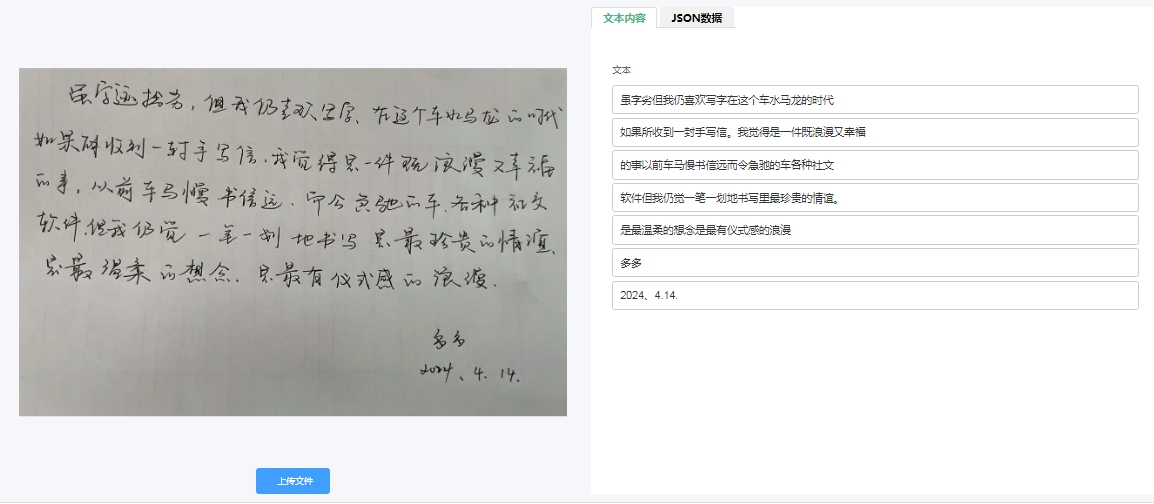 文本内容 JSON数据
文本
虽字迹拙劣，但我仍喜欢写字、在这个车水马龙的时代
如果能收到一封手写信，我觉得是一件既浪漫又幸福
的事，以前车马慢书信远．而今急驰的车．各种社交
软件，但我仍觉一笔一划地书写是最珍贵的情谊、
是最温柔的想念．是最有仪式感的浪漫．
多多
2024、4.14.
虽字劣但我仍喜欢写字在这个车水马龙的时代
如果所收到一封手写信。我觉得是一件既浪漫又幸福
的事以前车马慢书信远而令急驰的车各种社文
软件但我仍觉一笔一划地书写里最珍贵的情谊。
是最温柔的想念是最有仪式感的浪漫
多多
2024、4.14.
上传文件